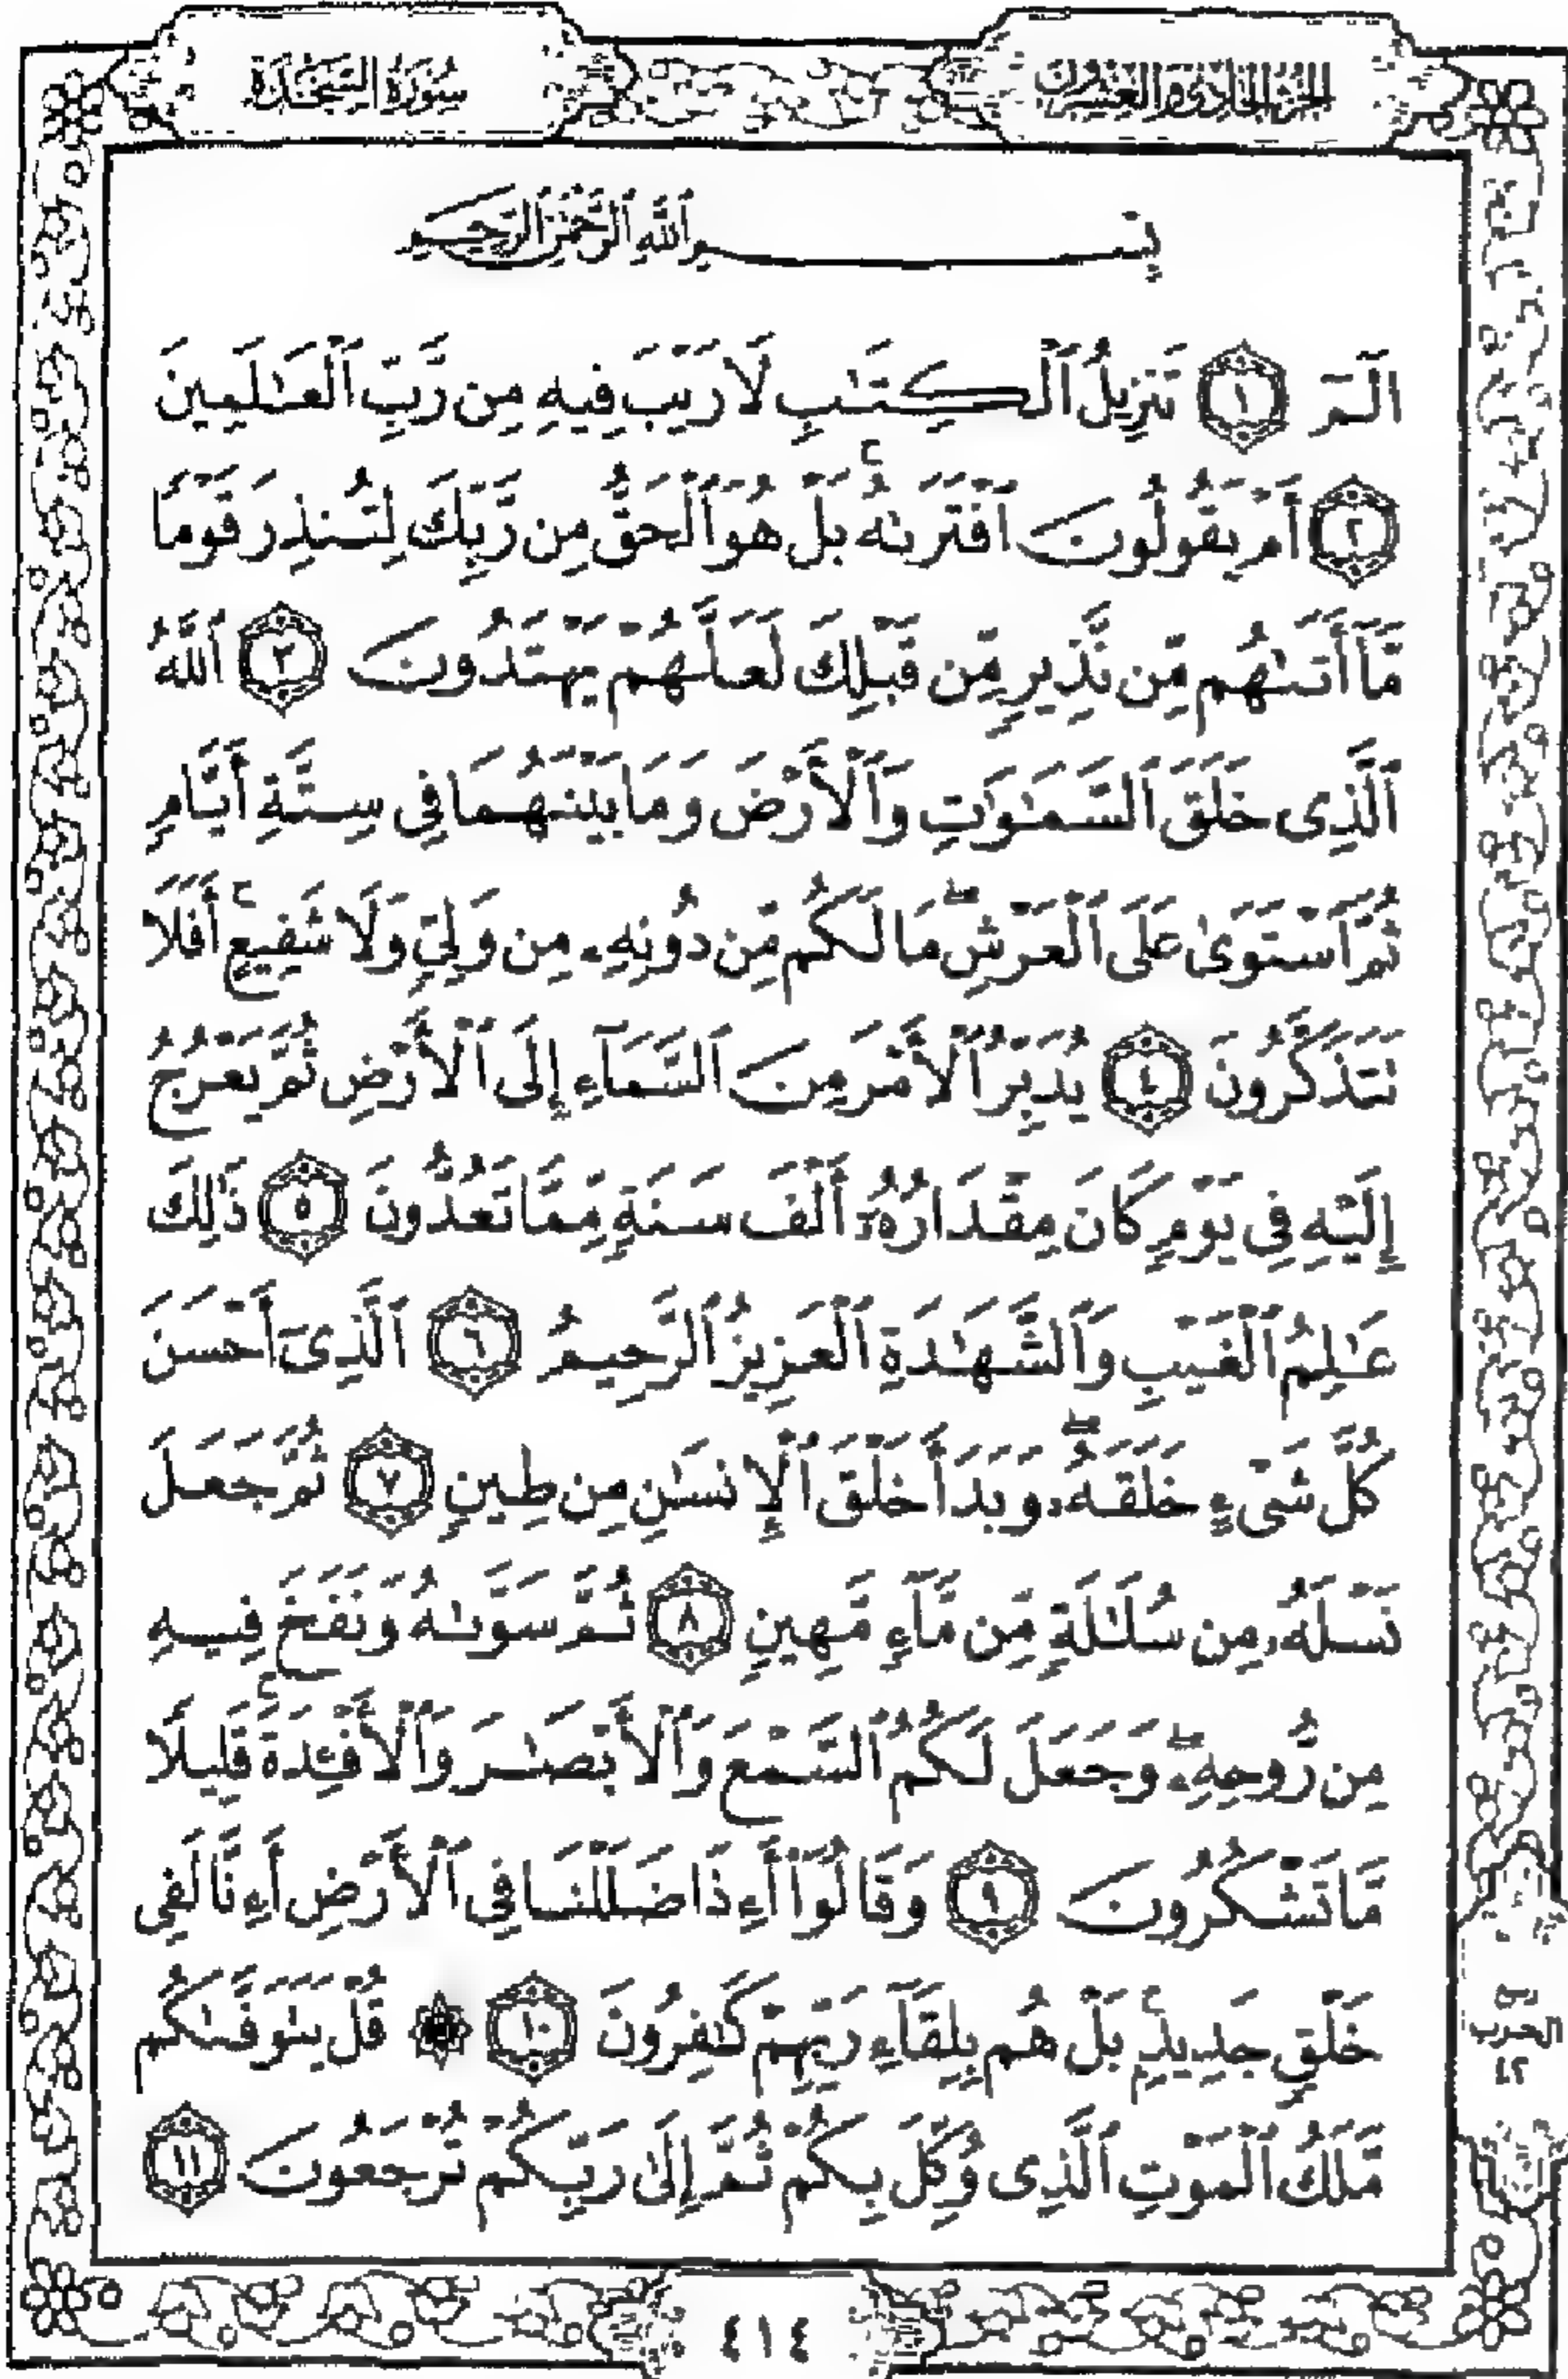 الجزء الحادي والعشرون
سورة السجدة
بِسْمِ ٱللَّهِ ٱلرَّحْمَٰنِ ٱلرَّحِيمِ
الٓمٓ ١ تَنزِيلُ ٱلْكِتَٰبِ لَا رَيْبَ فِيهِ مِن رَّبِّ ٱلْعَٰلَمِينَ
٢ أَمْ يَقُولُونَ ٱفْتَرَىٰهُ ۚ بَلْ هُوَ ٱلْحَقُّ مِن رَّبِّكَ لِتُنذِرَ قَوْمًا
مَّآ أَتَىٰهُم مِّن نَّذِيرٍ مِّن قَبْلِكَ لَعَلَّهُمْ يَهْتَدُونَ ٣ ٱللَّهُ
ٱلَّذِى خَلَقَ ٱلسَّمَٰوَٰتِ وَٱلْأَرْضَ وَمَا بَيْنَهُمَا فِى سِتَّةِ أَيَّامٍ
ثُمَّ ٱسْتَوَىٰ عَلَى ٱلْعَرْشِ ۖ مَا لَكُم مِّن دُونِهِۦ مِن وَلِىٍّ وَلَا شَفِيعٍ ۚ أَفَلَا
تَتَذَكَّرُونَ ٤ يُدَبِّرُ ٱلْأَمْرَ مِنَ ٱلسَّمَآءِ إِلَى ٱلْأَرْضِ ثُمَّ يَعْرُجُ
إِلَيْهِ فِى يَوْمٍ كَانَ مِقْدَارُهُۥٓ أَلْفَ سَنَةٍ مِّمَّا تَعُدُّونَ ٥ ذَٰلِكَ
عَٰلِمُ ٱلْغَيْبِ وَٱلشَّهَٰدَةِ ٱلْعَزِيزُ ٱلرَّحِيمُ ٦ ٱلَّذِىٓ أَحْسَنَ
كُلَّ شَىْءٍ خَلَقَهُۥ ۖ وَبَدَأَ خَلْقَ ٱلْإِنسَٰنِ مِن طِينٍ ٧ ثُمَّ جَعَلَ
نَسْلَهُۥ مِن سُلَٰلَةٍ مِّن مَّآءٍ مَّهِينٍ ٨ ثُمَّ سَوَّىٰهُ وَنَفَخَ فِيهِ
مِن رُّوحِهِۦ ۖ وَجَعَلَ لَكُمُ ٱلسَّمْعَ وَٱلْأَبْصَٰرَ وَٱلْأَفْـِٔدَةَ ۚ قَلِيلًا
مَّا تَشْكُرُونَ ٩ وَقَالُوٓا۟ أَءِذَا ضَلَلْنَا فِى ٱلْأَرْضِ أَءِنَّا لَفِى
خَلْقٍ جَدِيدٍۭ ۚ بَلْ هُم بِلِقَآءِ رَبِّهِمْ كَٰفِرُونَ ١٠ ۞ قُلْ يَتَوَفَّىٰكُم
مَّلَكُ ٱلْمَوْتِ ٱلَّذِى وُكِّلَ بِكُمْ ثُمَّ إِلَىٰ رَبِّكُمْ تُرْجَعُونَ ١١
الحزب
٤٢
٤١٤